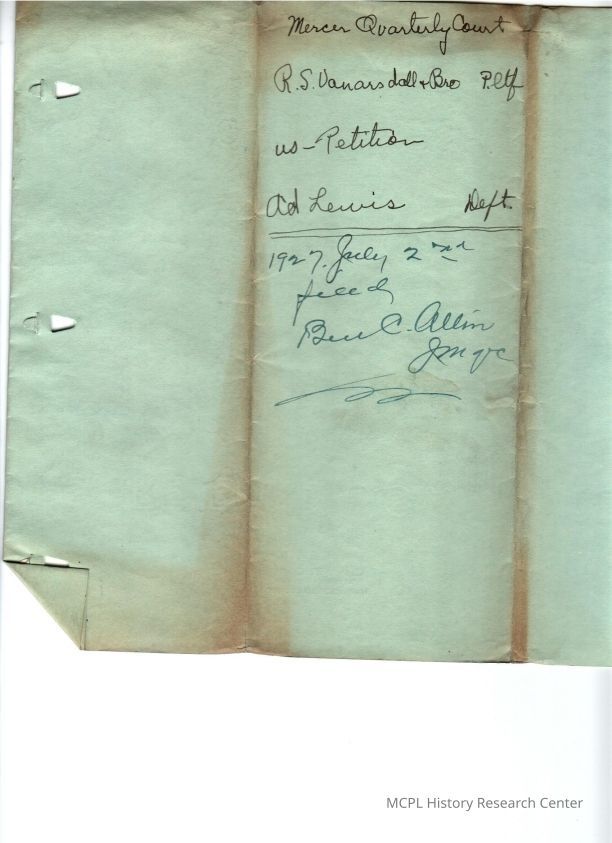 Mercer Quarterly Court
R.S. Vanarsdall & Bro Pltf
vs - Petition
Ad Lewis Deft.
1927. July 2nd
filed
Ben C. Allin
JMQC
MCPL History Research Center